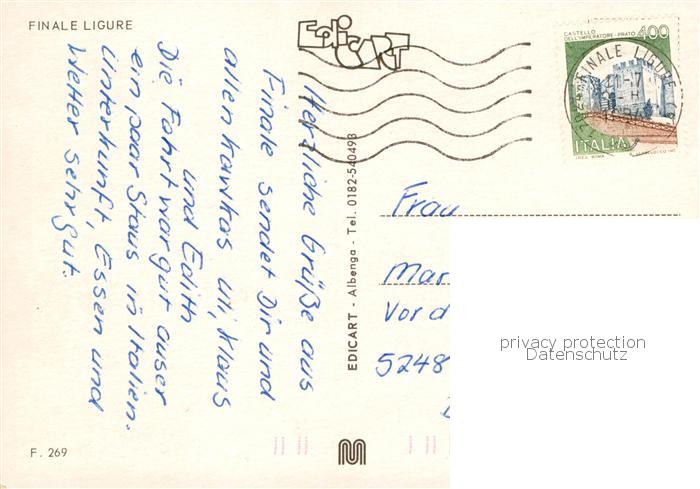 FINALE LIGURE
EdiCART
CASTELLO
DELL'IMPERATORE - PRATO
400
FINALE LIGURE
ITALIA
Herzliche Grüße aus
Finale sendet Dir und
allen Uli, Klaus
und Edith
Die Fahrt war gut auser
ein paar Staus in Italien.
Unterkunft, Essen und
Wetter sehr gut.
EDICART - Albenga - Tel. 0182-540498
Frau
Mar
Vor d
5248
privacy protection
Datenschutz
F. 269